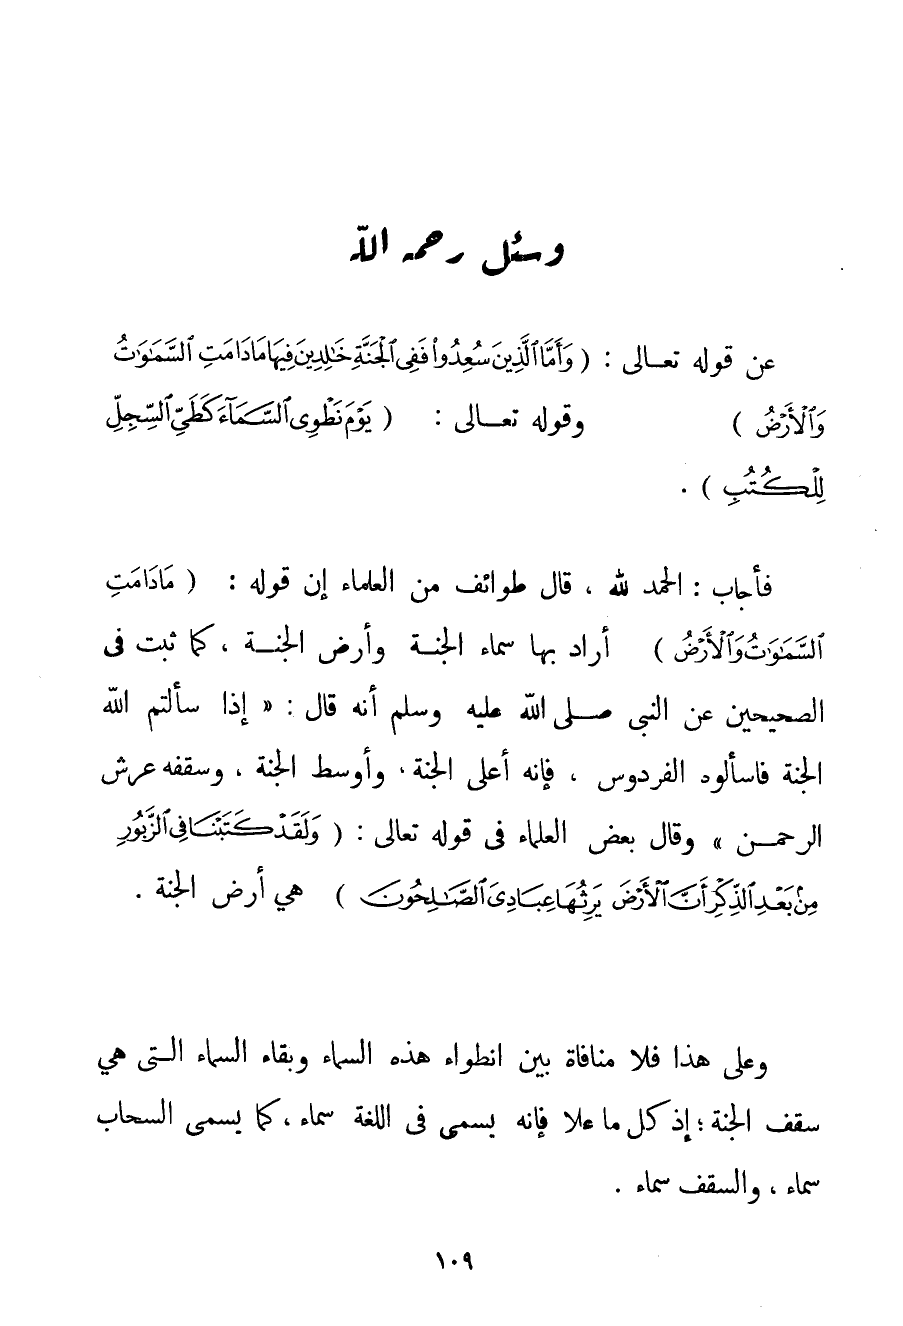 وسئل رحمه الله
عن قوله تعالى : ( وَأَمَّا ٱلَّذِينَ سُعِدُوا۟ فَفِى ٱلْجَنَّةِ خَٰلِدِينَ فِيهَا مَادَامَتِ ٱلسَّمَٰوَٰتُ
وَٱلْأَرْضُ ) وقوله تعالى : ( يَوْمَ نَطْوِى ٱلسَّمَآءَ كَطَىِّ ٱلسِّجِلِّ
لِلْكُتُبِ ) .
فأجاب : الحمد لله ، قال طوائف من العلماء إن قوله : ( مَادَامَتِ
ٱلسَّمَٰوَٰتُ وَٱلْأَرْضُ ) أراد بها سماء الجنة وأرض الجنة ، كما ثبت فى
الصحيحين عن النبى صلى الله عليه وسلم أنه قال : « إذا سألتم الله
الجنة فاسألوه الفردوس ، فإنه أعلى الجنة ، وأوسط الجنة ، وسقفه عرش
الرحمن » وقال بعض العلماء فى قوله تعالى : ( وَلَقَدْ كَتَبْنَا فِى ٱلزَّبُورِ
مِنۢ بَعْدِ ٱلذِّكْرِ أَنَّ ٱلْأَرْضَ يَرِثُهَا عِبَادِىَ ٱلصَّٰلِحُونَ ) هي أرض الجنة .
وعلى هذا فلا منافاة بين انطواء هذه السماء وبقاء السماء التى هي
سقف الجنة ؛ إذ كل ما علا فإنه يسمى فى اللغة سماء ، كما يسمى السحاب
سماء ، والسقف سماء .
١٠٩